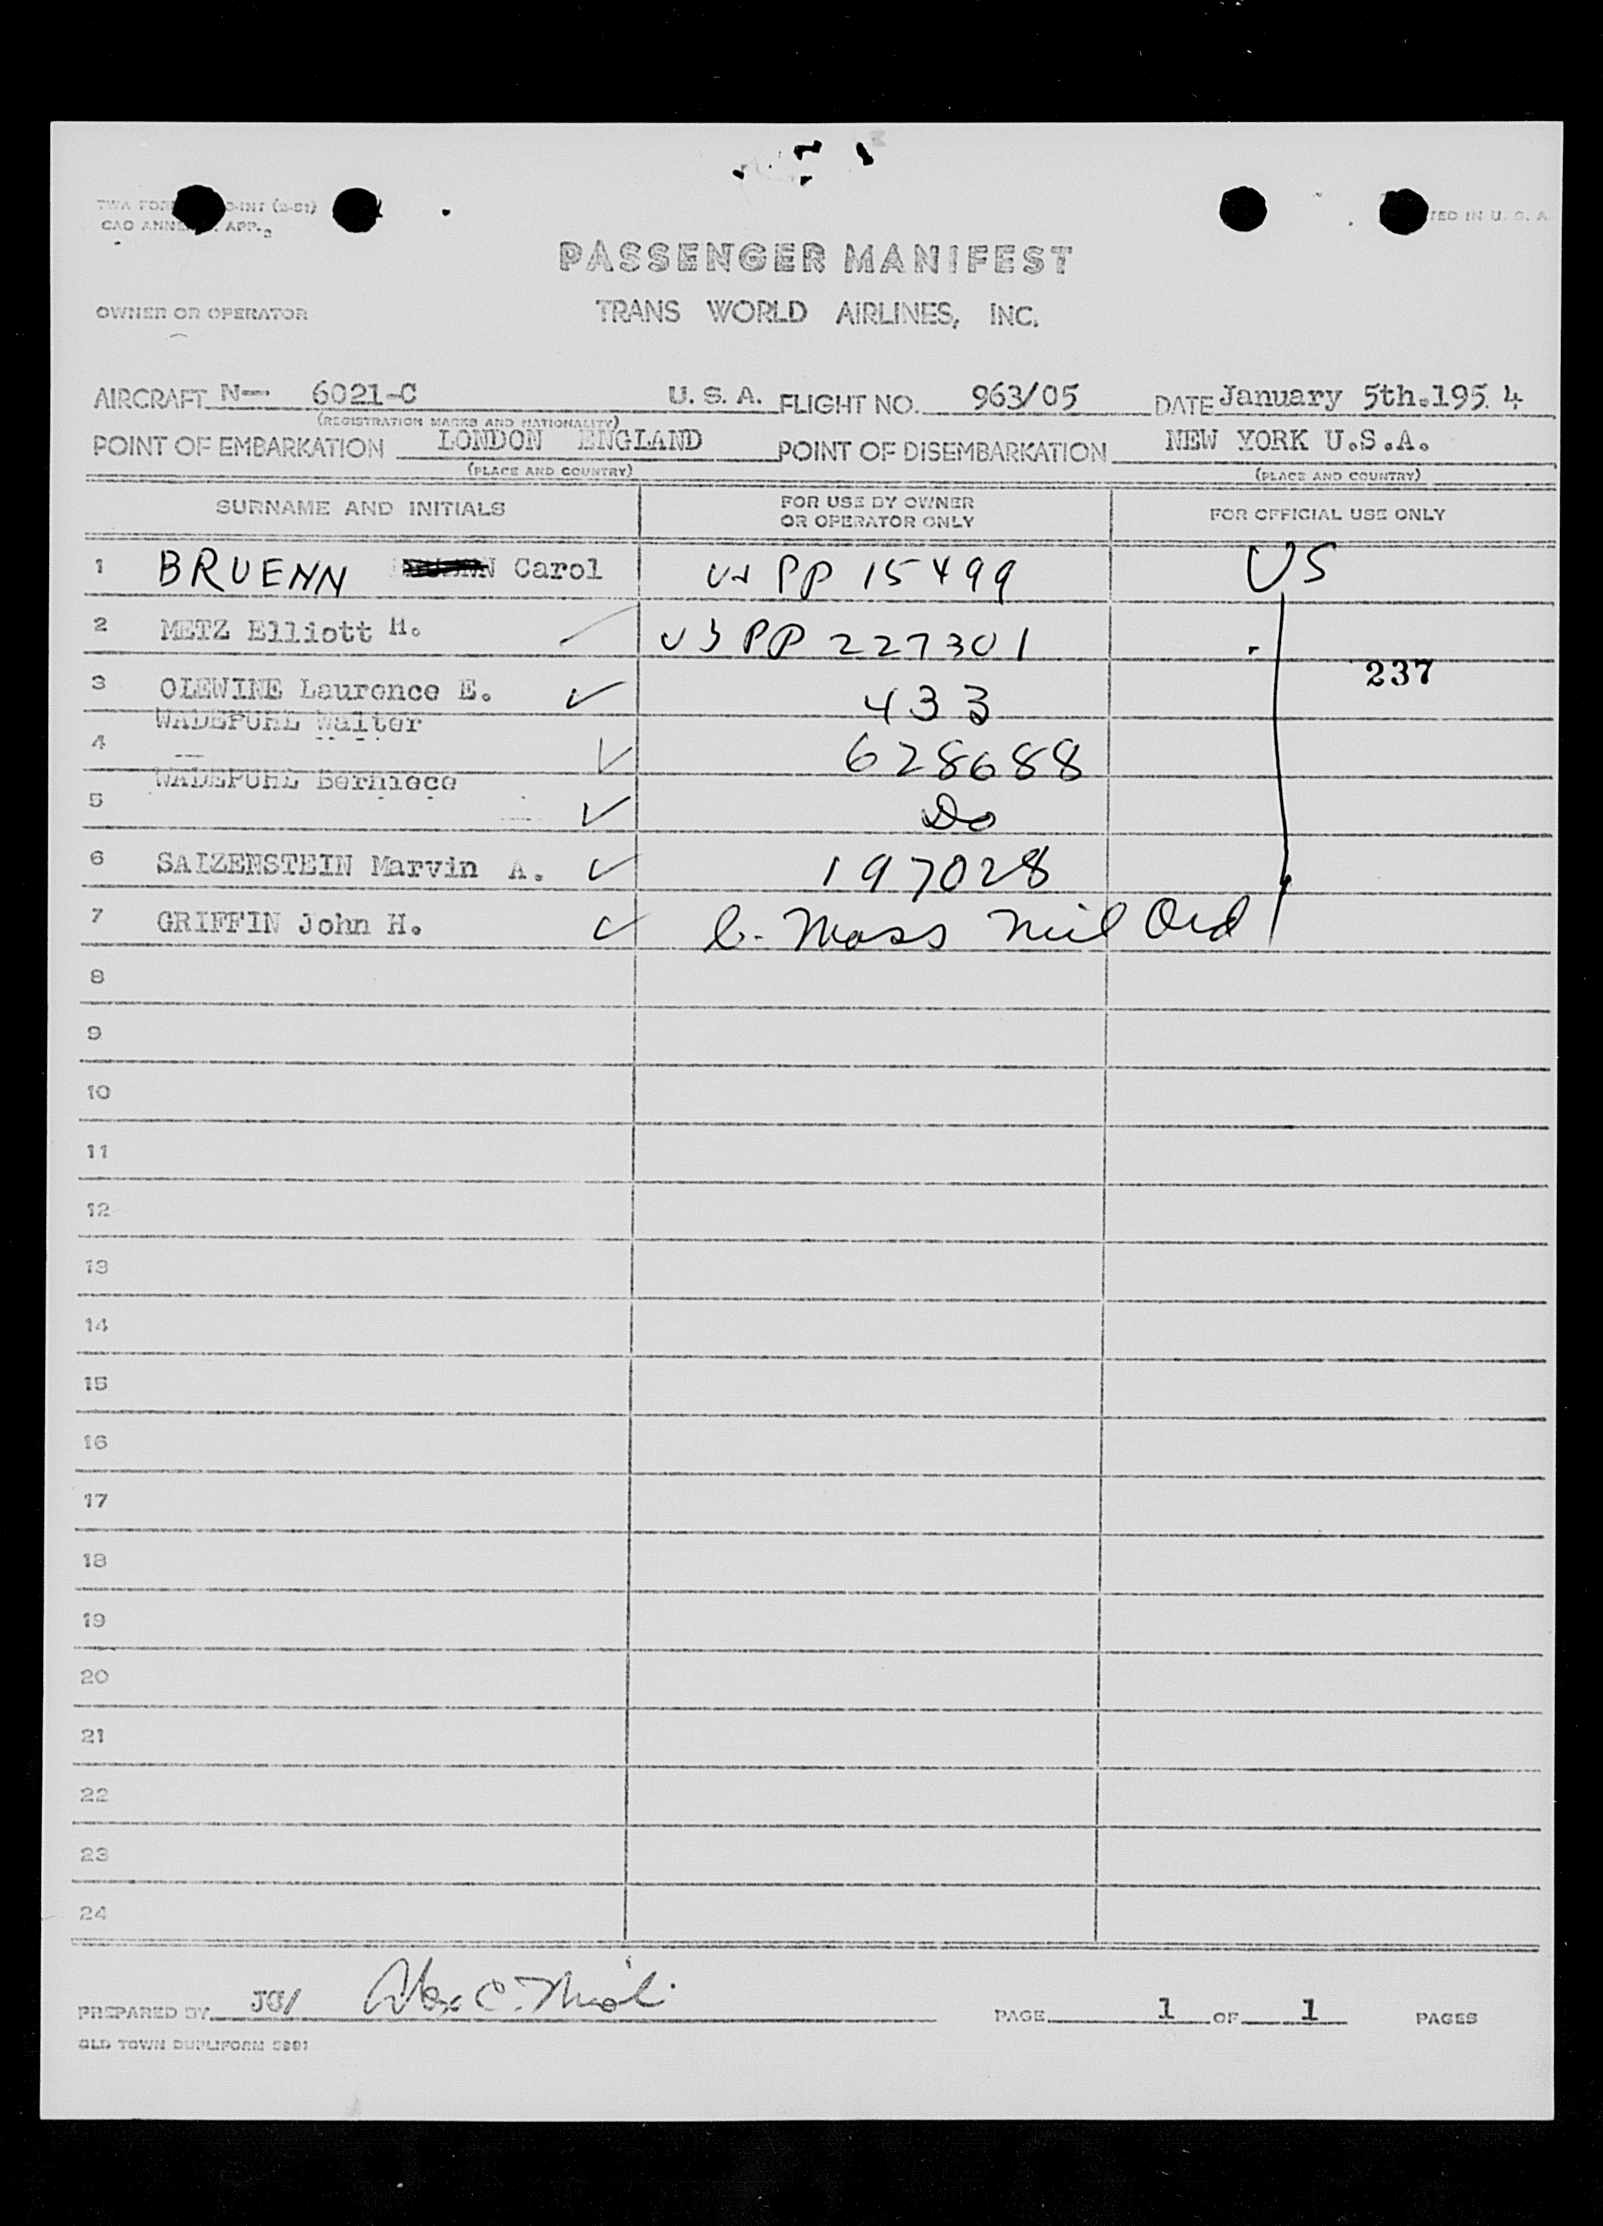 TWA FORM O-INT (2-51)
CAO ANNE APP. 2
TED IN U. S. A.
PASSENGER MANIFEST
OWNER OR OPERATOR
TRANS WORLD AIRLINES, INC.
AIRCRAFT N— 6021-C U. S. A. FLIGHT NO. 963/05 DATE January 5th.195 4
(REGISTRATION MARKS AND NATIONALITY)
POINT OF EMBARKATION LONDON ENGLAND POINT OF DISEMBARKATION NEW YORK U.S.A.
(PLACE AND COUNTRY) (PLACE AND COUNTRY)
SURNAME AND INITIALS FOR USE BY OWNER OR OPERATOR ONLY FOR OFFICIAL USE ONLY
1 BRUENN Carol US PP 15499 US
2 METZ Elliott H. US PP 227301
237
3 OLEWINE Laurence E. 433
4 WADEPUHL Walter 628688
5 WADEPUHL Berniece Do
6 SALZENSTEIN Marvin A. 197028
7 GRIFFIN John H. Mass Mil Ord
8
9
10
11
12
13
14
15
16
17
18
19
20
21
22
23
24
PREPARED BY JG/ Alex C. PAGE 1 OF 1 PAGES
OLD TOWN DUPLIFORM 5991